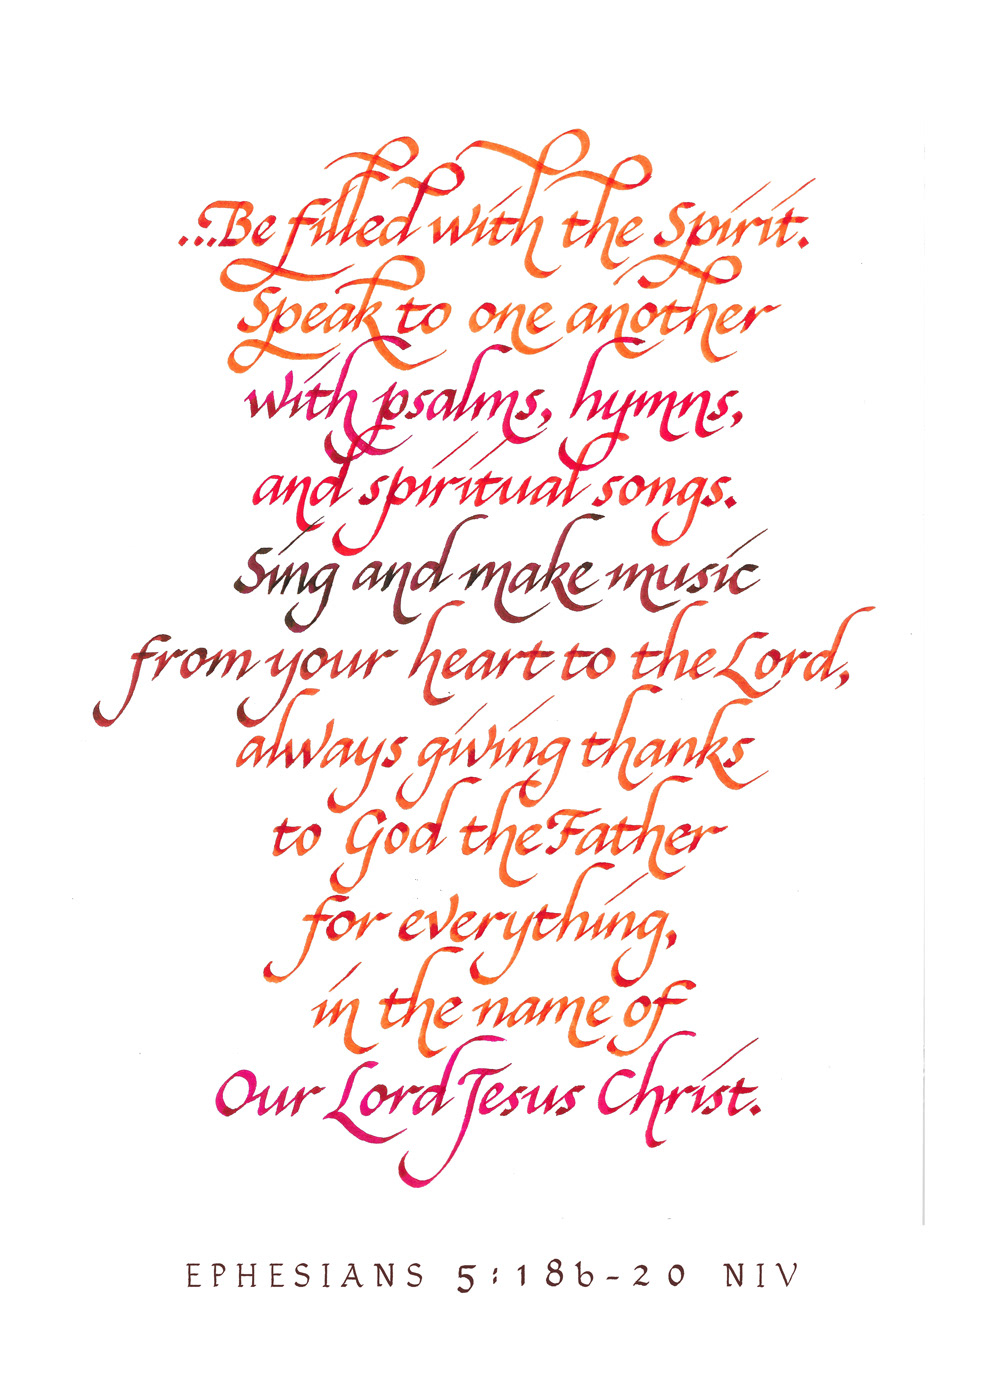 ...Be filled with the Spirit.
Speak to one another
with psalms, hymns,
and spiritual songs.
Sing and make music
from your heart to the Lord,
always giving thanks
to God the Father
for everything,
in the name of
Our Lord Jesus Christ.
EPHESIANS 5:18b-20 NIV